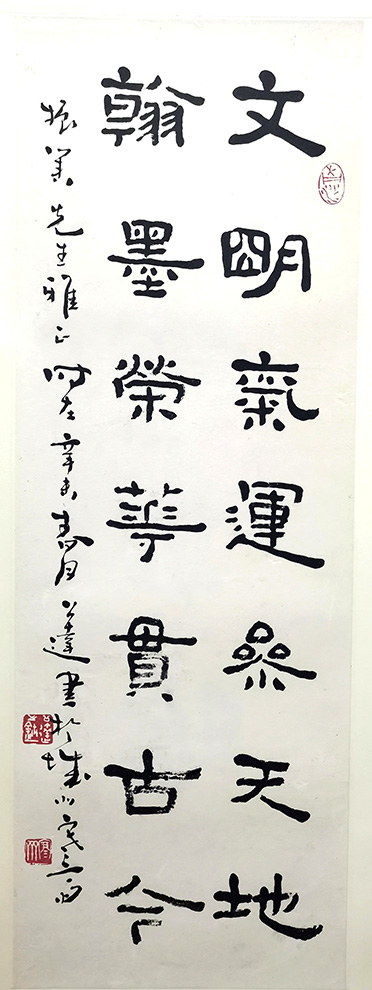 文明氣運參天地
翰墨榮華貫古今
振先生雅正時在辛未春月公達書於城